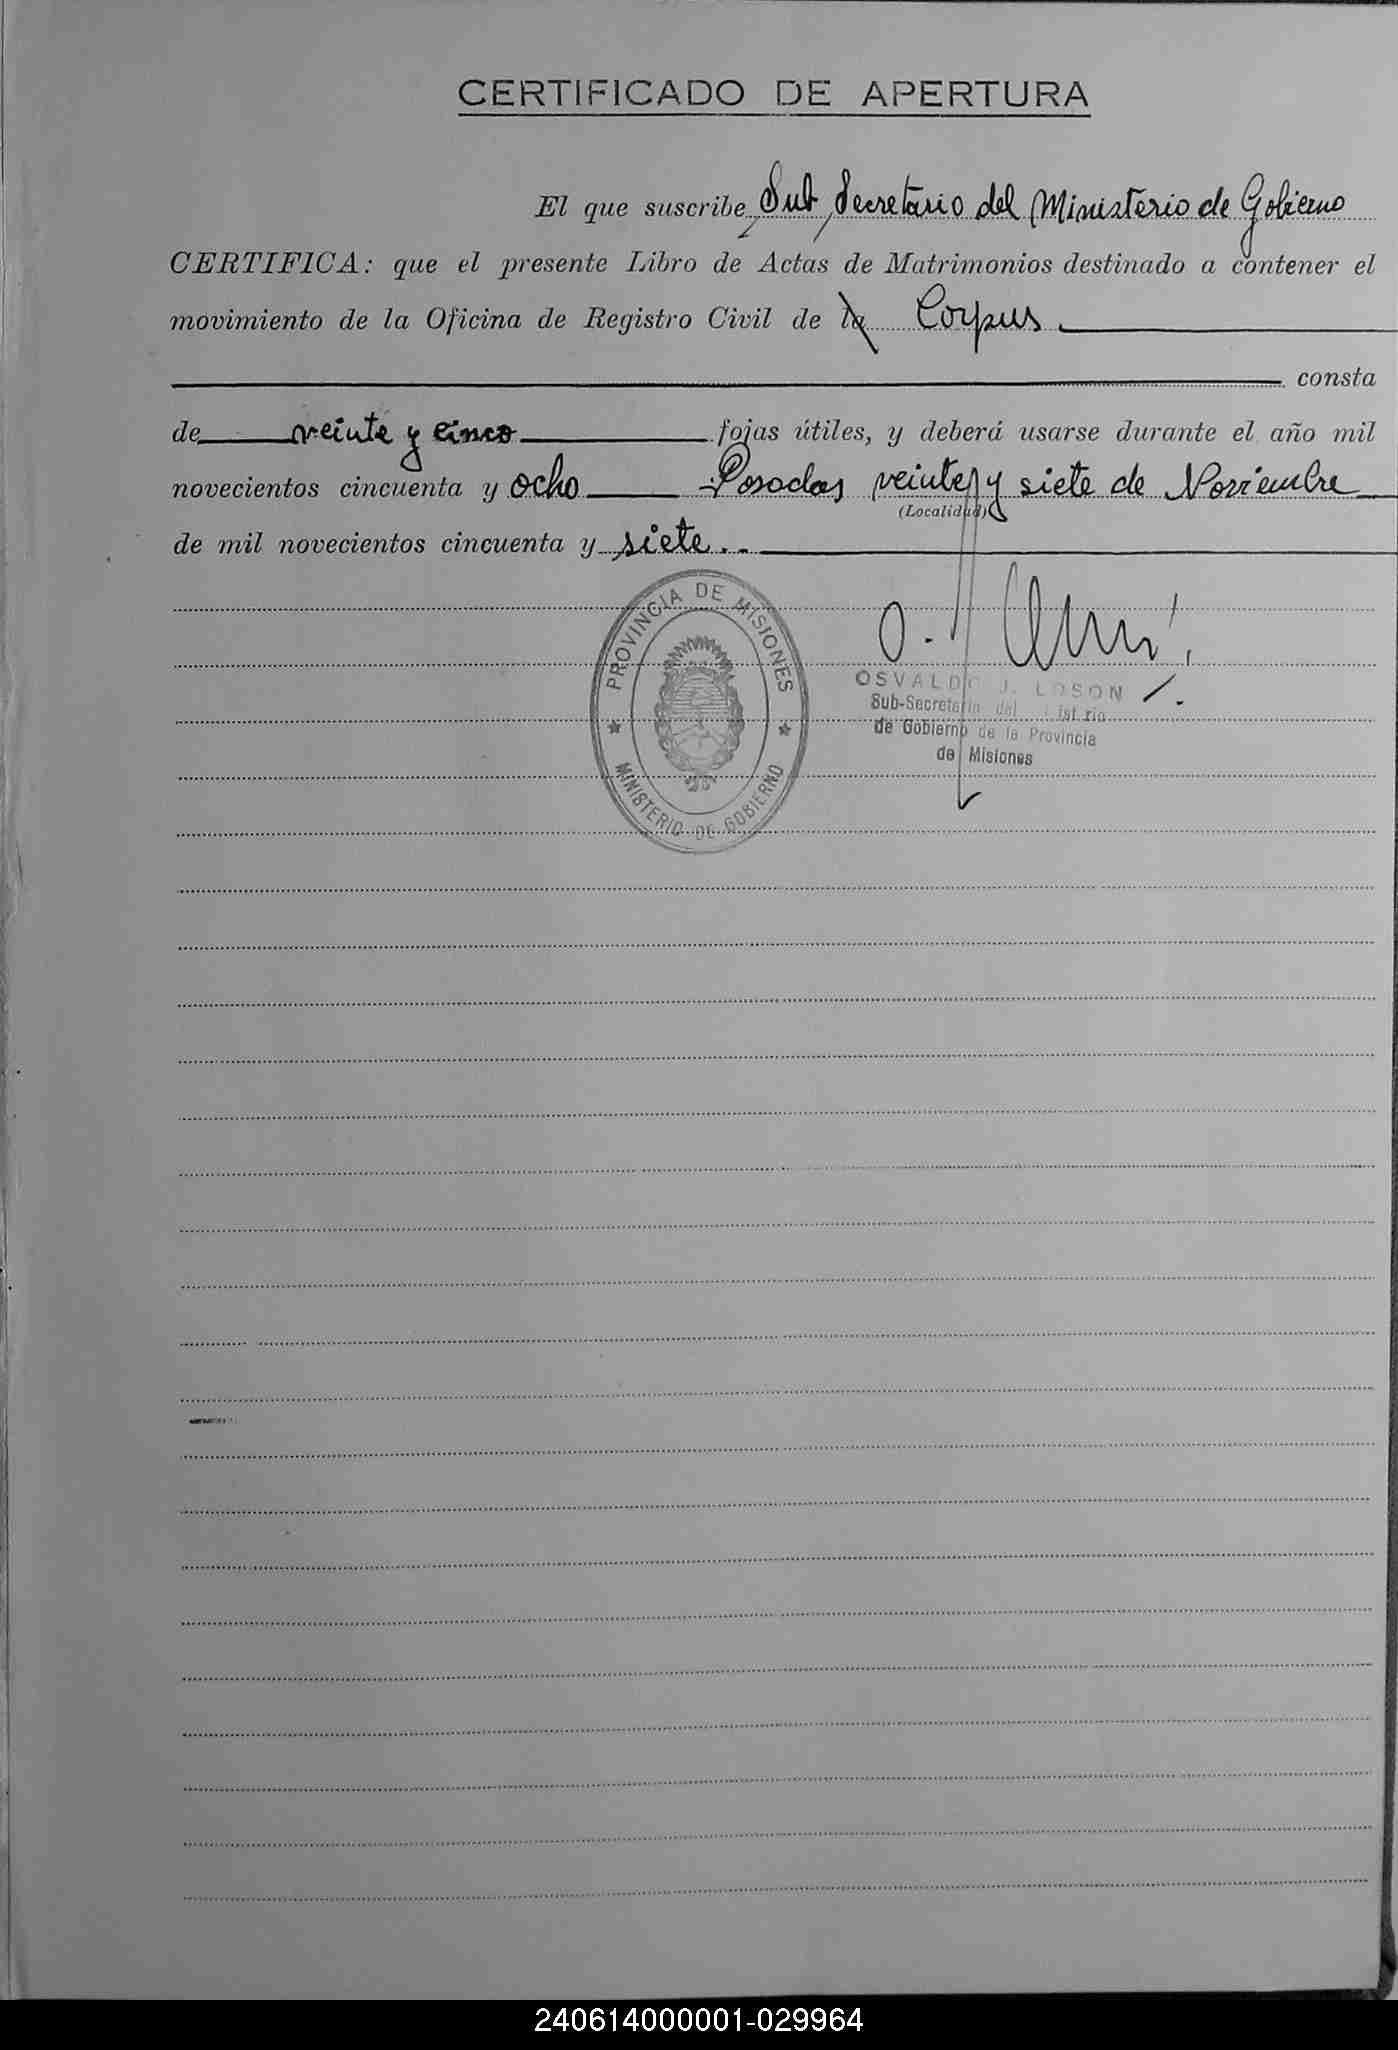 CERTIFICADO DE APERTURA
El que suscribe, Sub Secretario del Ministerio de Gobierno
CERTIFICA: que el presente Libro de Actas de Matrimonios destinado a contener el
movimiento de la Oficina de Registro Civil de la Corpus
consta
de veinte y cinco fojas útiles, y deberá usarse durante el año mil
novecientos cincuenta y ocho Posadas veinte y siete de Noviembre
(Localidad)
de mil novecientos cincuenta y siete..
PROVINCIA DE MISIONES
MINISTERIO DE GOBIERNO
OSVALDO J. LOSON
Sub-Secretario del
de Gobierno de la Provincia
de Misiones
240614000001-029964